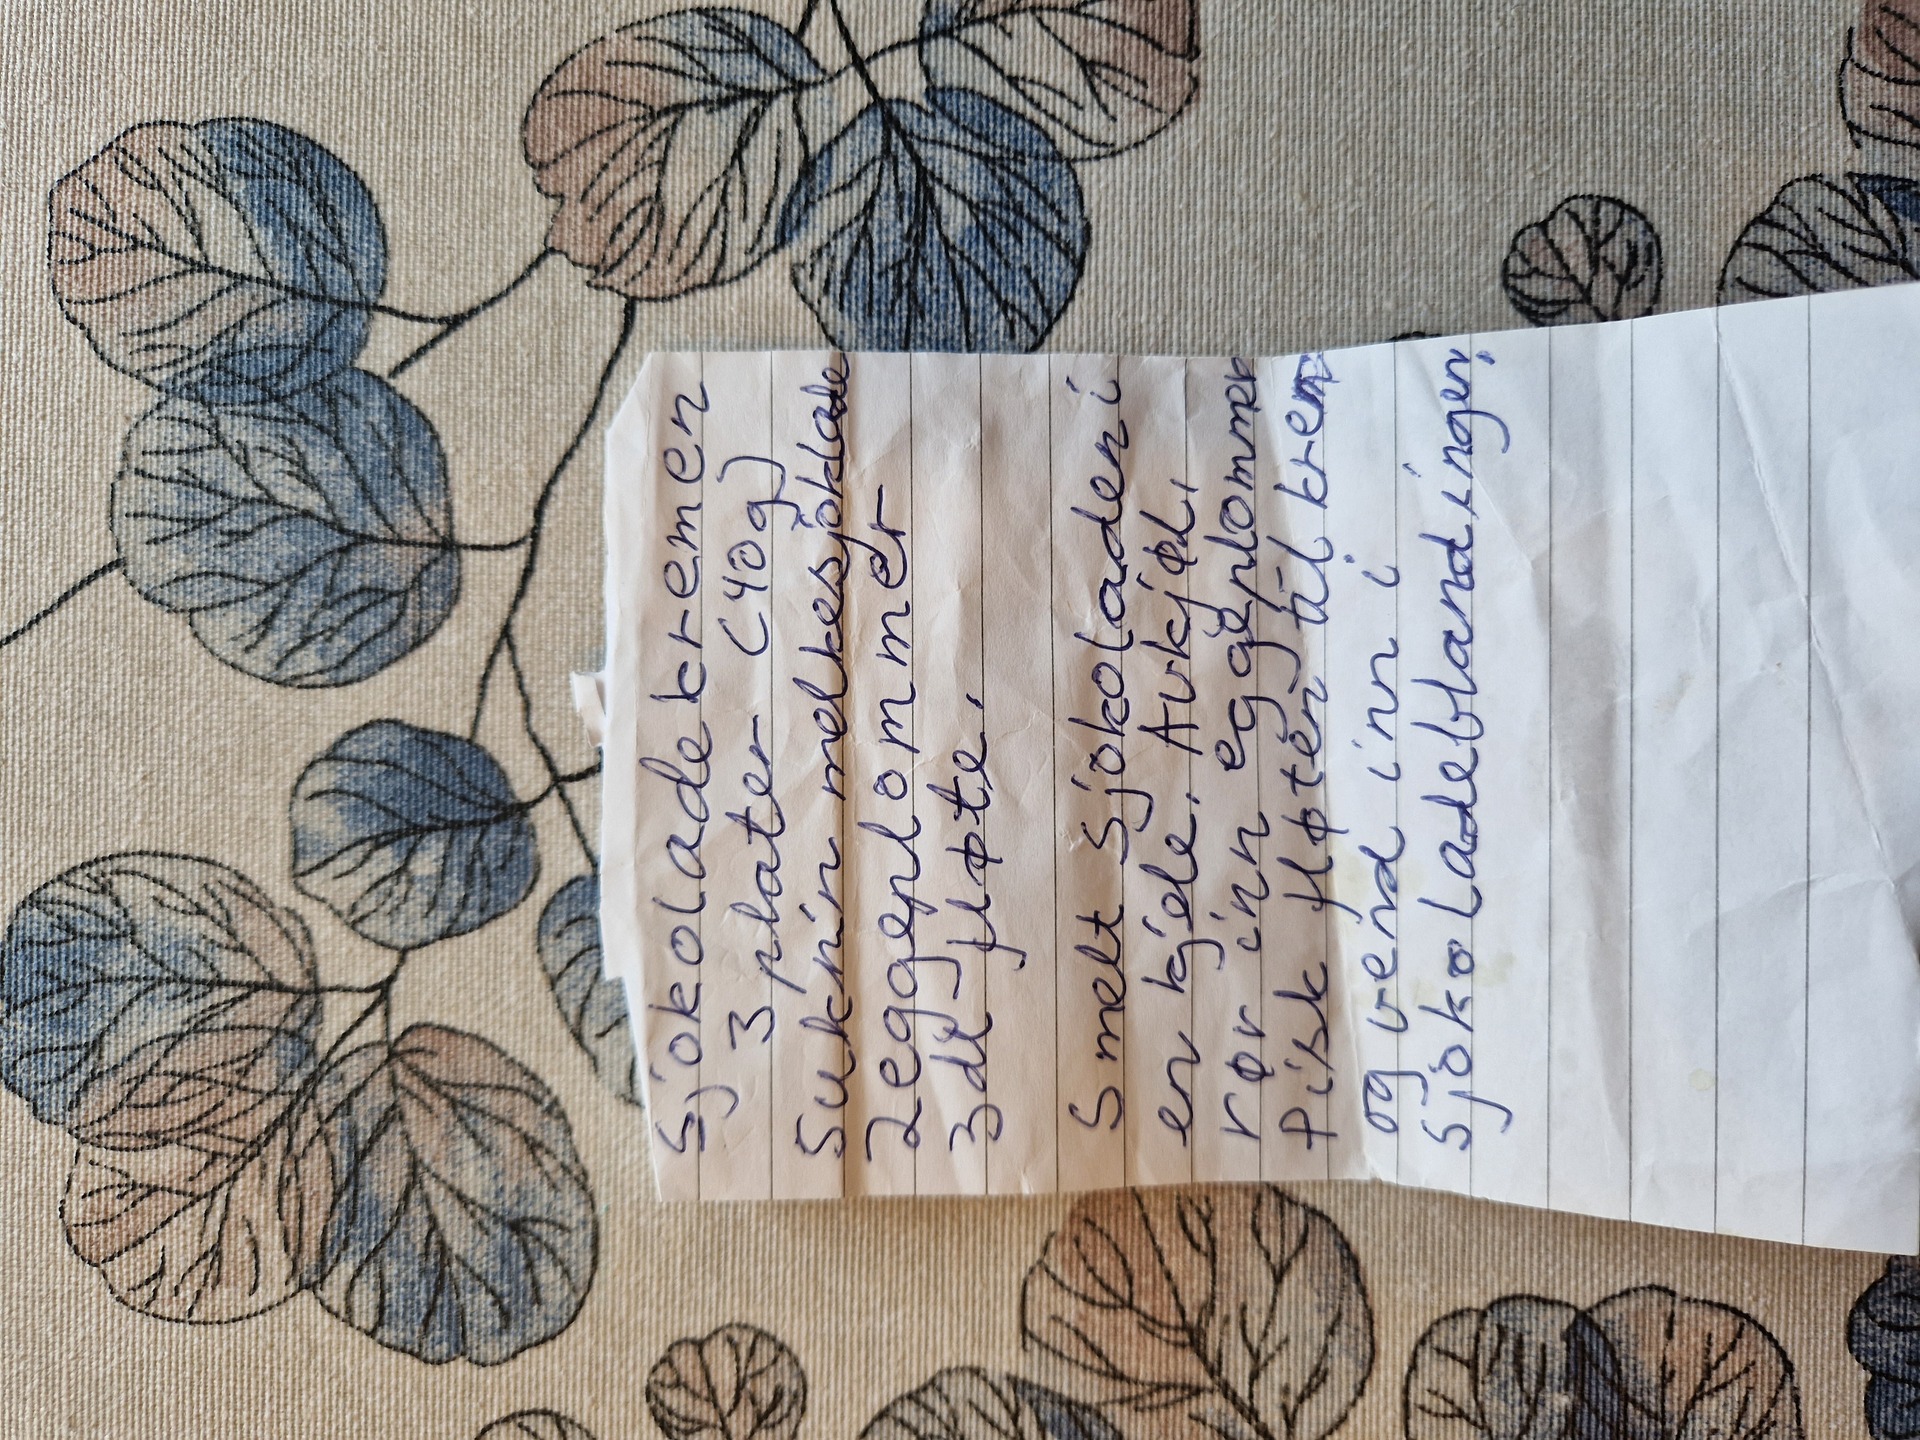 Sjokoladekremen
3 plater (40g)
Sukrin melkesjoklade
2 eggeplommer
3 dl fløte.
Smelt sjokoladen i
en kjele. Avkjøl,
rør inn eggeplommer
Pisk fløten til krem
og vend inn i
sjokoladeblandingen.